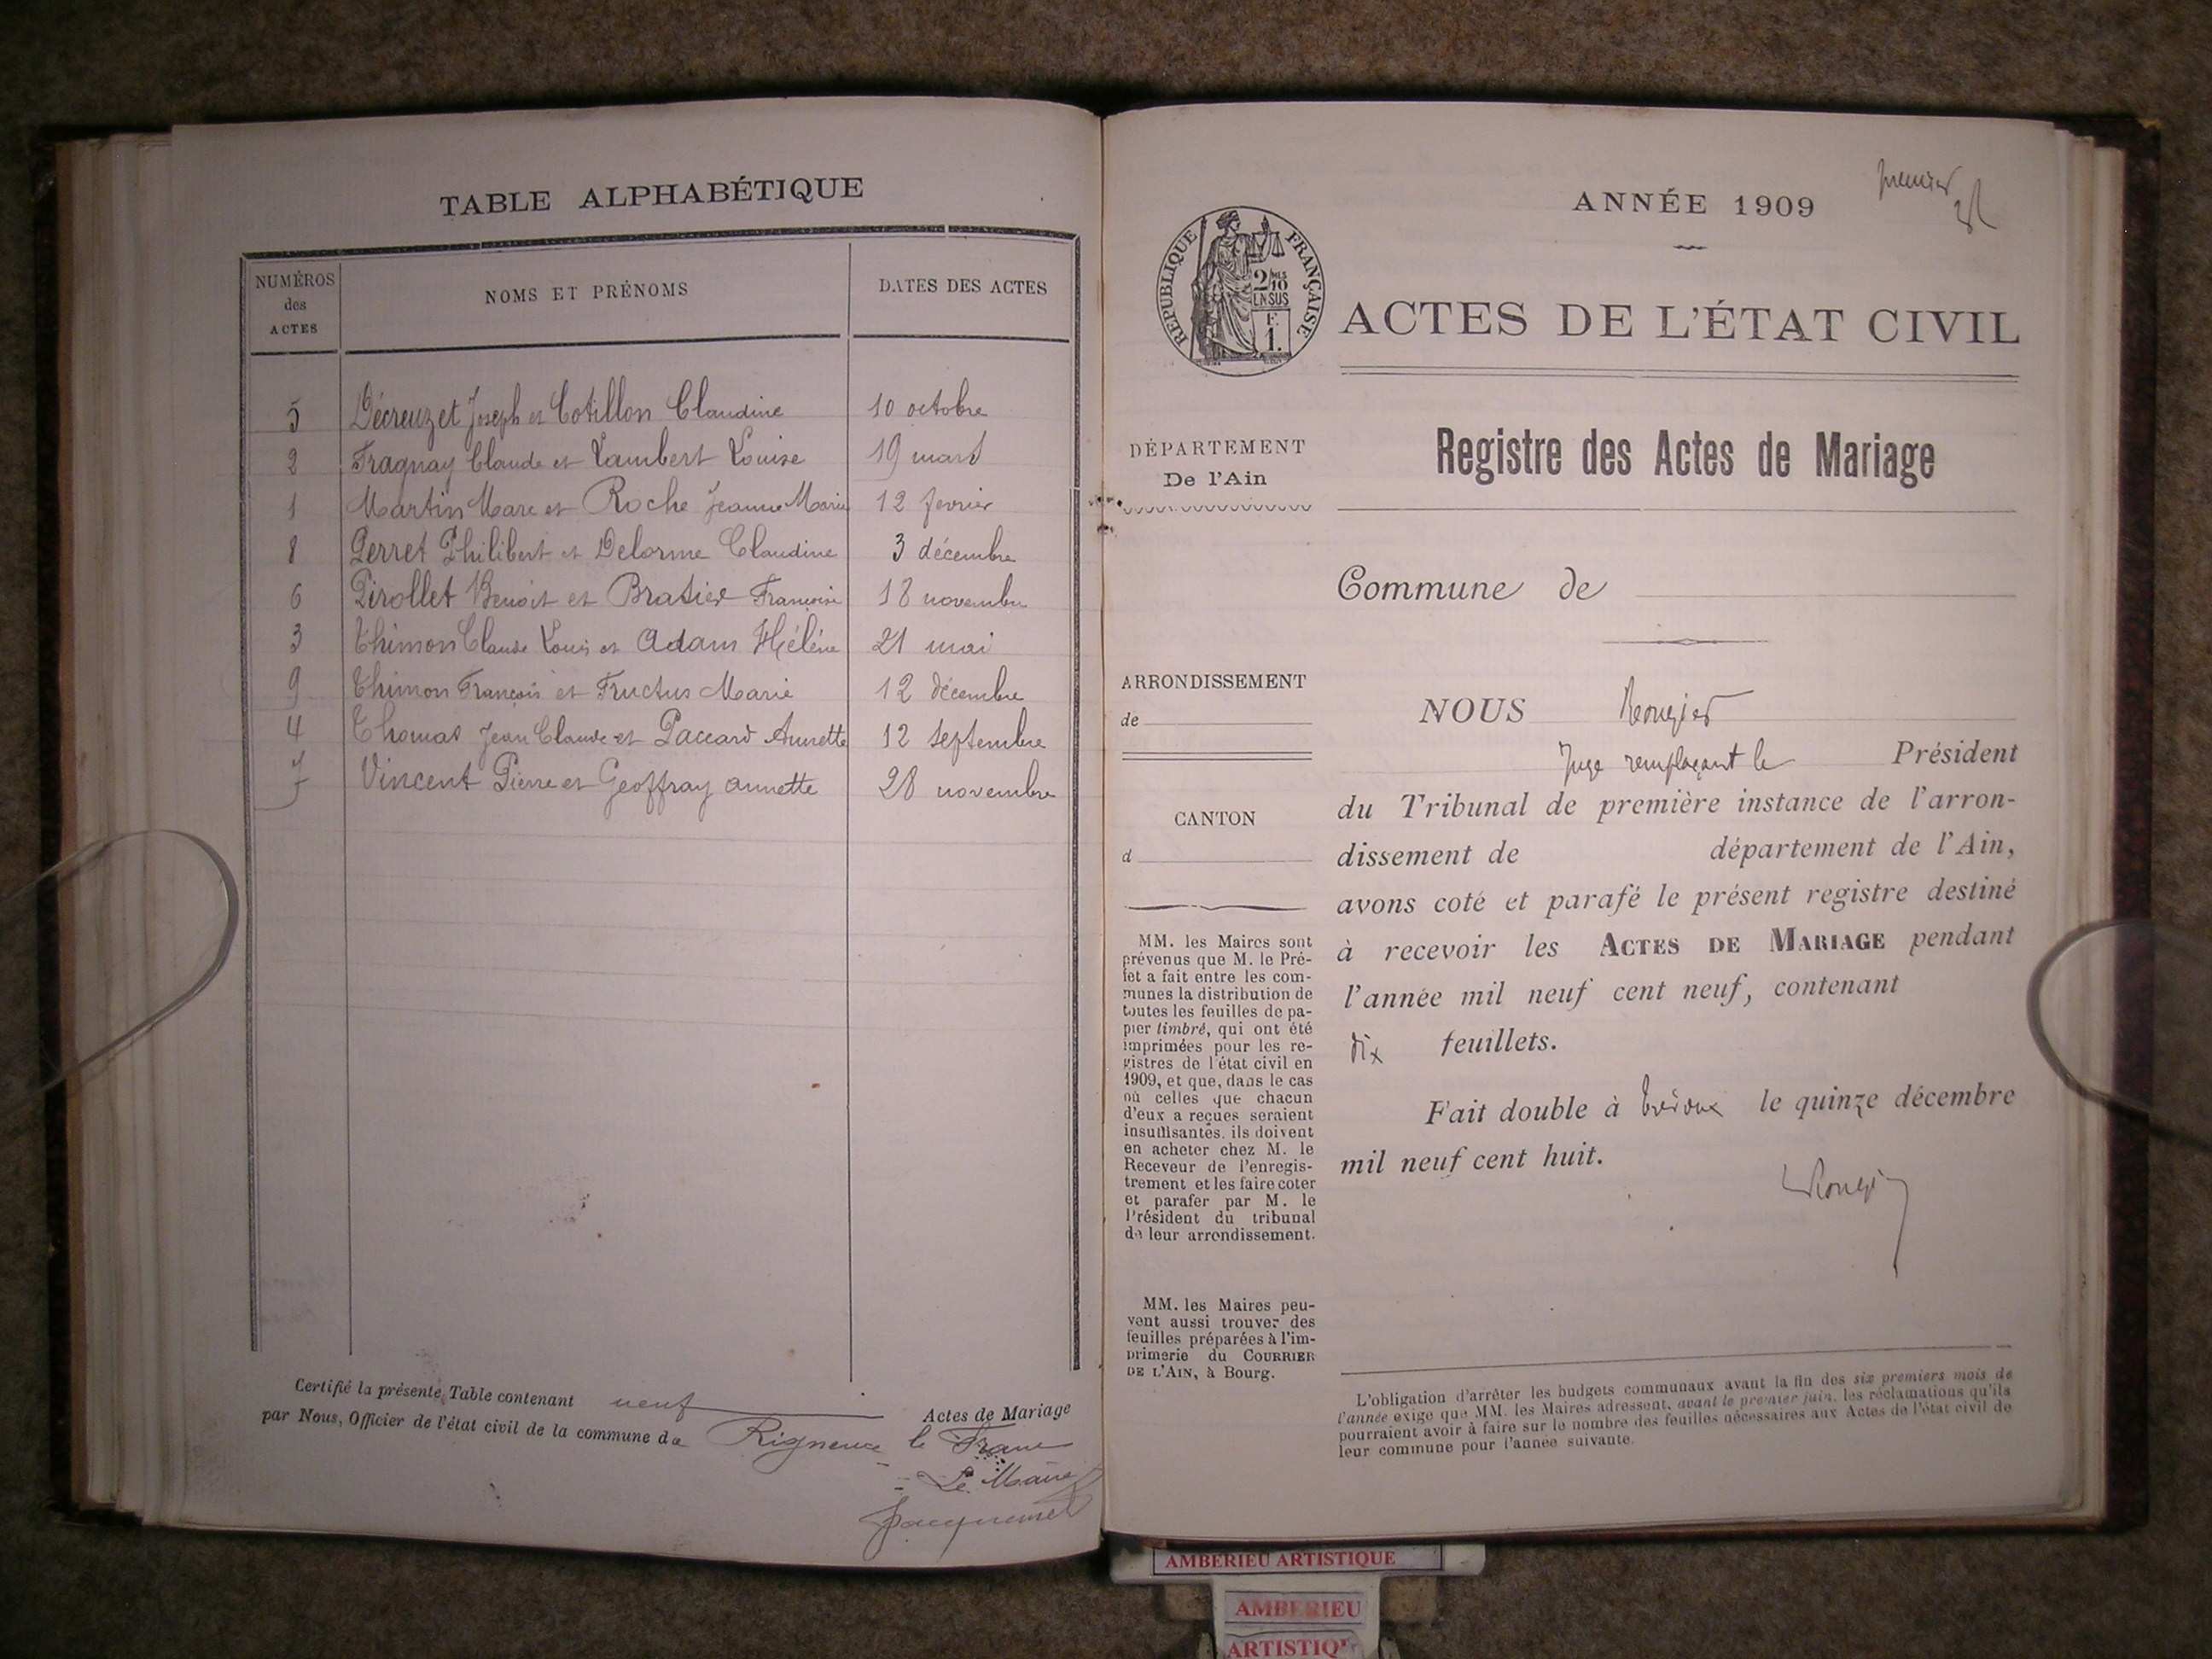 TABLE ALPHABÉTIQUE
NUMÉROS des ACTES
NOMS ET PRÉNOMS
DATES DES ACTES
5 Décreuzet Joseph et Cotillon Claudine 10 octobre
2 Fragnay Claude et Lambert Louise 19 mars
1 Martin Marc et Roche Jeanne Marie 12 fevrier
8 Perret Philibert et Delorme Claudine 3 décembre
6 Pirollet Benoit et Brasier Françoise 18 novembre
3 Thimon Claude Louis et Adam Hélène 21 mai
9 Thimon François et Fructus Marie 12 décembre
4 Thomas Jean Claude et Paccard Annette 12 septembre
7 Vincent Pierre et Geoffray annette 28 novembre
Certifié la présente Table contenant neuf Actes de Mariage
par Nous, Officier de l'état civil de la commune de Rigneux le Franc
Le Maire
Jacquemet
premier
ANNÉE 1909
RÉPUBLIQUE FRANÇAISE
2/10
EN SUS
F.
1.
ACTES DE L'ÉTAT CIVIL
DÉPARTEMENT
De l'Ain
Registre des Actes de Mariage
Commune de
ARRONDISSEMENT
de
CANTON
d
MM. les Maires sont
prévenus que M. le Pré-
fet a fait entre les com-
munes la distribution de
toutes les feuilles de pa-
pier timbré, qui ont été
imprimées pour les re-
gistres de l'état civil en
1909, et que, dans le cas
où celles que chacun
d'eux a reçues seraient
insuffisantes, ils doivent
en acheter chez M. le
Receveur de l'enregis-
trement et les faire coter
et parafer par M. le
Président du tribunal
de leur arrondissement.
MM. les Maires peu-
vent aussi trouver des
feuilles préparées à l'im-
primerie du COURRIER
DE L'AIN, à Bourg.
NOUS Rougier
Juge remplaçant le Président
du Tribunal de première instance de l'arron-
dissement de département de l'Ain,
avons coté et parafé le présent registre destiné
à recevoir les ACTES DE MARIAGE pendant
l'année mil neuf cent neuf, contenant
dix feuillets.
Fait double à Trévoux le quinze décembre
mil neuf cent huit.
Rougier
L'obligation d'arrêter les budgets communaux avant la fin des six premiers mois de
l'année exige que MM. les Maires adressent, avant le premier juin, les réclamations qu'ils
pourraient avoir à faire sur le nombre des feuilles nécessaires aux Actes de l'état civil de
leur commune pour l'année suivante.
AMBERIEU ARTISTIQUE
AMBERIEU
ARTISTIQU